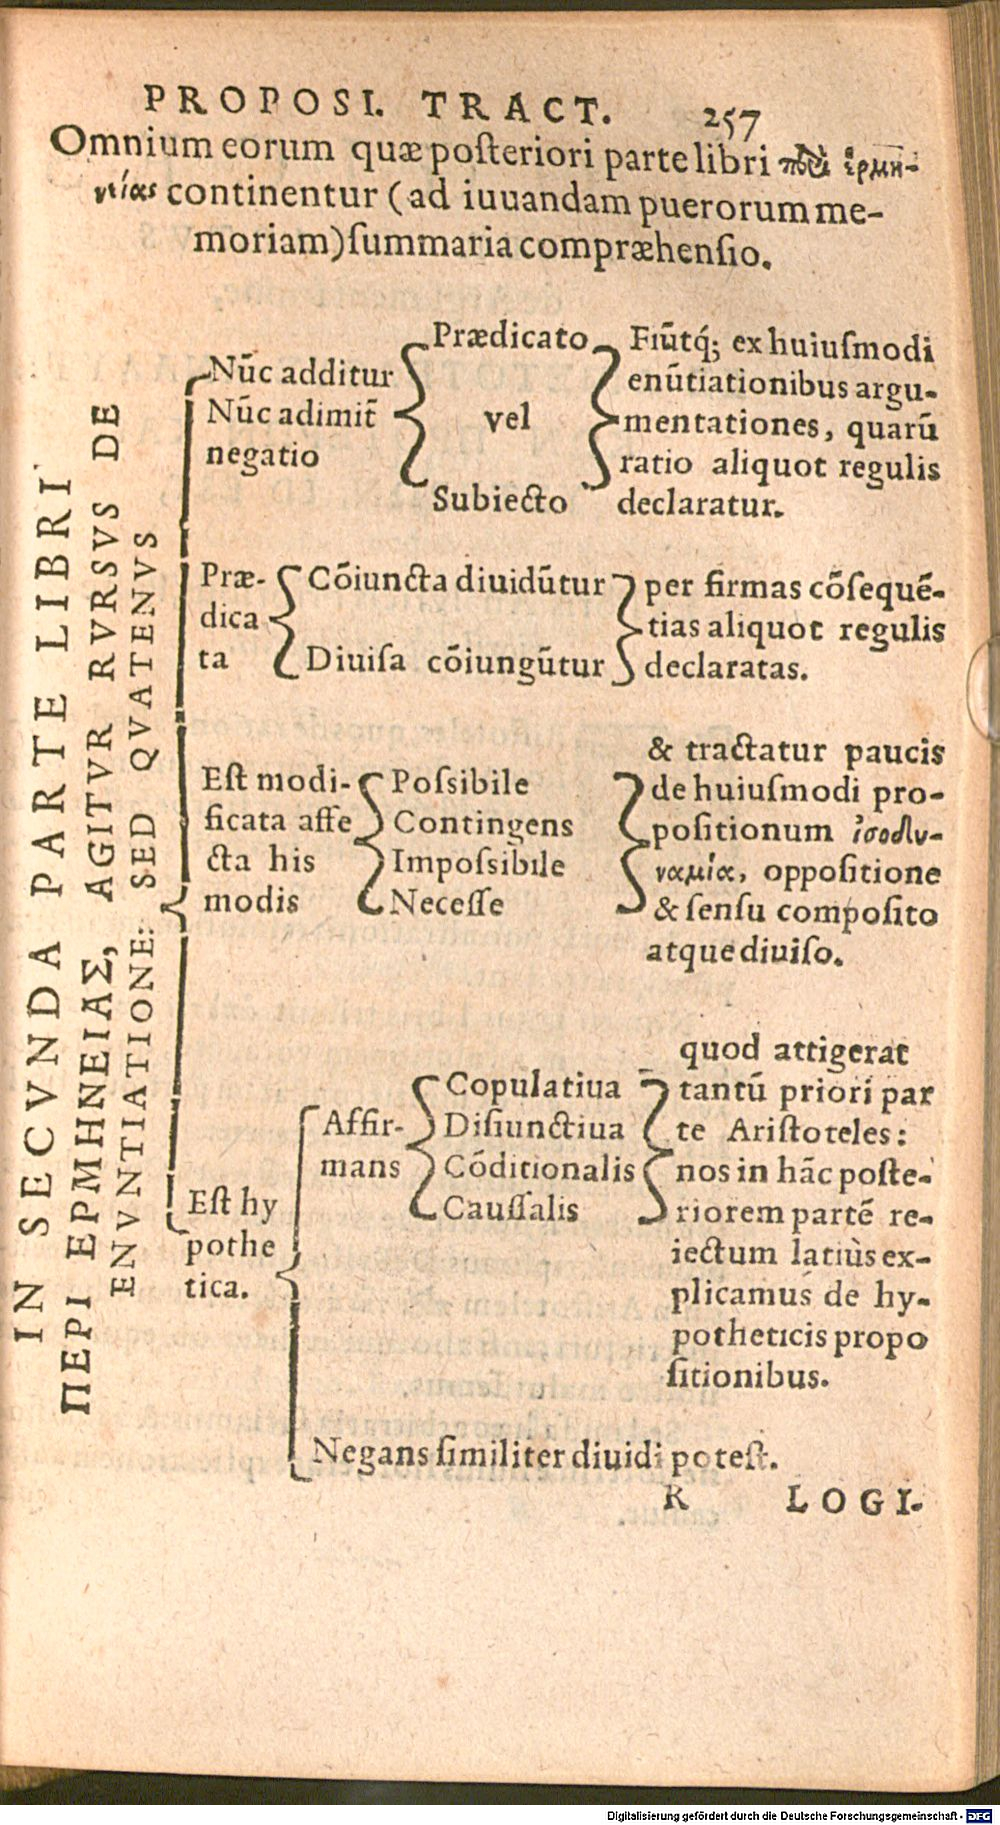 PROPOSI. TRACT. 257
Omnium eorum quæ posteriori parte libri περὶ ἑρμη-
νείας continentur (ad iuuandam puerorum me-
moriam) summaria compræhensio.
IN SECVNDA PARTE LIBRI
ΠΕΡΙ ΕΡΜΗΝΕΙΑΣ, AGITVR RVRSVS DE
ENVNTIATIONE: SED QVATENVS
Nūc additur
Nūc adimit̄
negatio
Prædicato
vel
Subiecto
Fiūtq́; ex huiusmodi
enūtiationibus argu-
mentationes, quarū
ratio aliquot regulis
declaratur.
Præ-
dica
ta
Cōiuncta diuidūtur
Diuisa cōiungūtur
per firmas cōsequē-
tias aliquot regulis
declaratas.
Est modi-
ficata affe
cta his
modis
Possibile
Contingens
Impossibile
Necesse
& tractatur paucis
de huiusmodi pro-
positionum ἰσοδυ-
ναμία, oppositione
& sensu composito
atque diuiso.
Est hy
pothe
tica.
Affir-
mans
Copulatiua
Disiunctiua
Cōditionalis
Caussalis
quod attigerat
tantū priori par
te Aristoteles:
nos in hāc poste-
riorem partē re-
iectum latiùs ex-
plicamus de hy-
potheticis propo
sitionibus.
Negans similiter diuidi potest.
R LOGI-
Digitalisierung gefördert durch die Deutsche Forschungsgemeinschaft - DFG